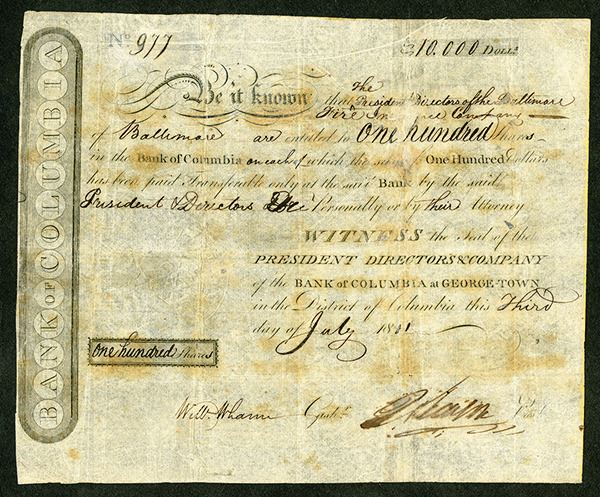 BANK OF COLUMBIA
No. 977
10,000 Doll.
Be it known that The President Directors of the Baltimore
Fire Company
of Baltimore are entitled to One hundred Shares
in the Bank of Columbia on each of which the sum of One Hundred Dollars
has been paid Transferable only at the said Bank by the said
President & Directors Personally or by their Attorney
WITNESS the Seal of the
PRESIDENT DIRECTORS & COMPANY
of the BANK OF COLUMBIA at GEORGE-TOWN
in the District of Columbia this Third
day of July
One hundred Shares
Will. Whann